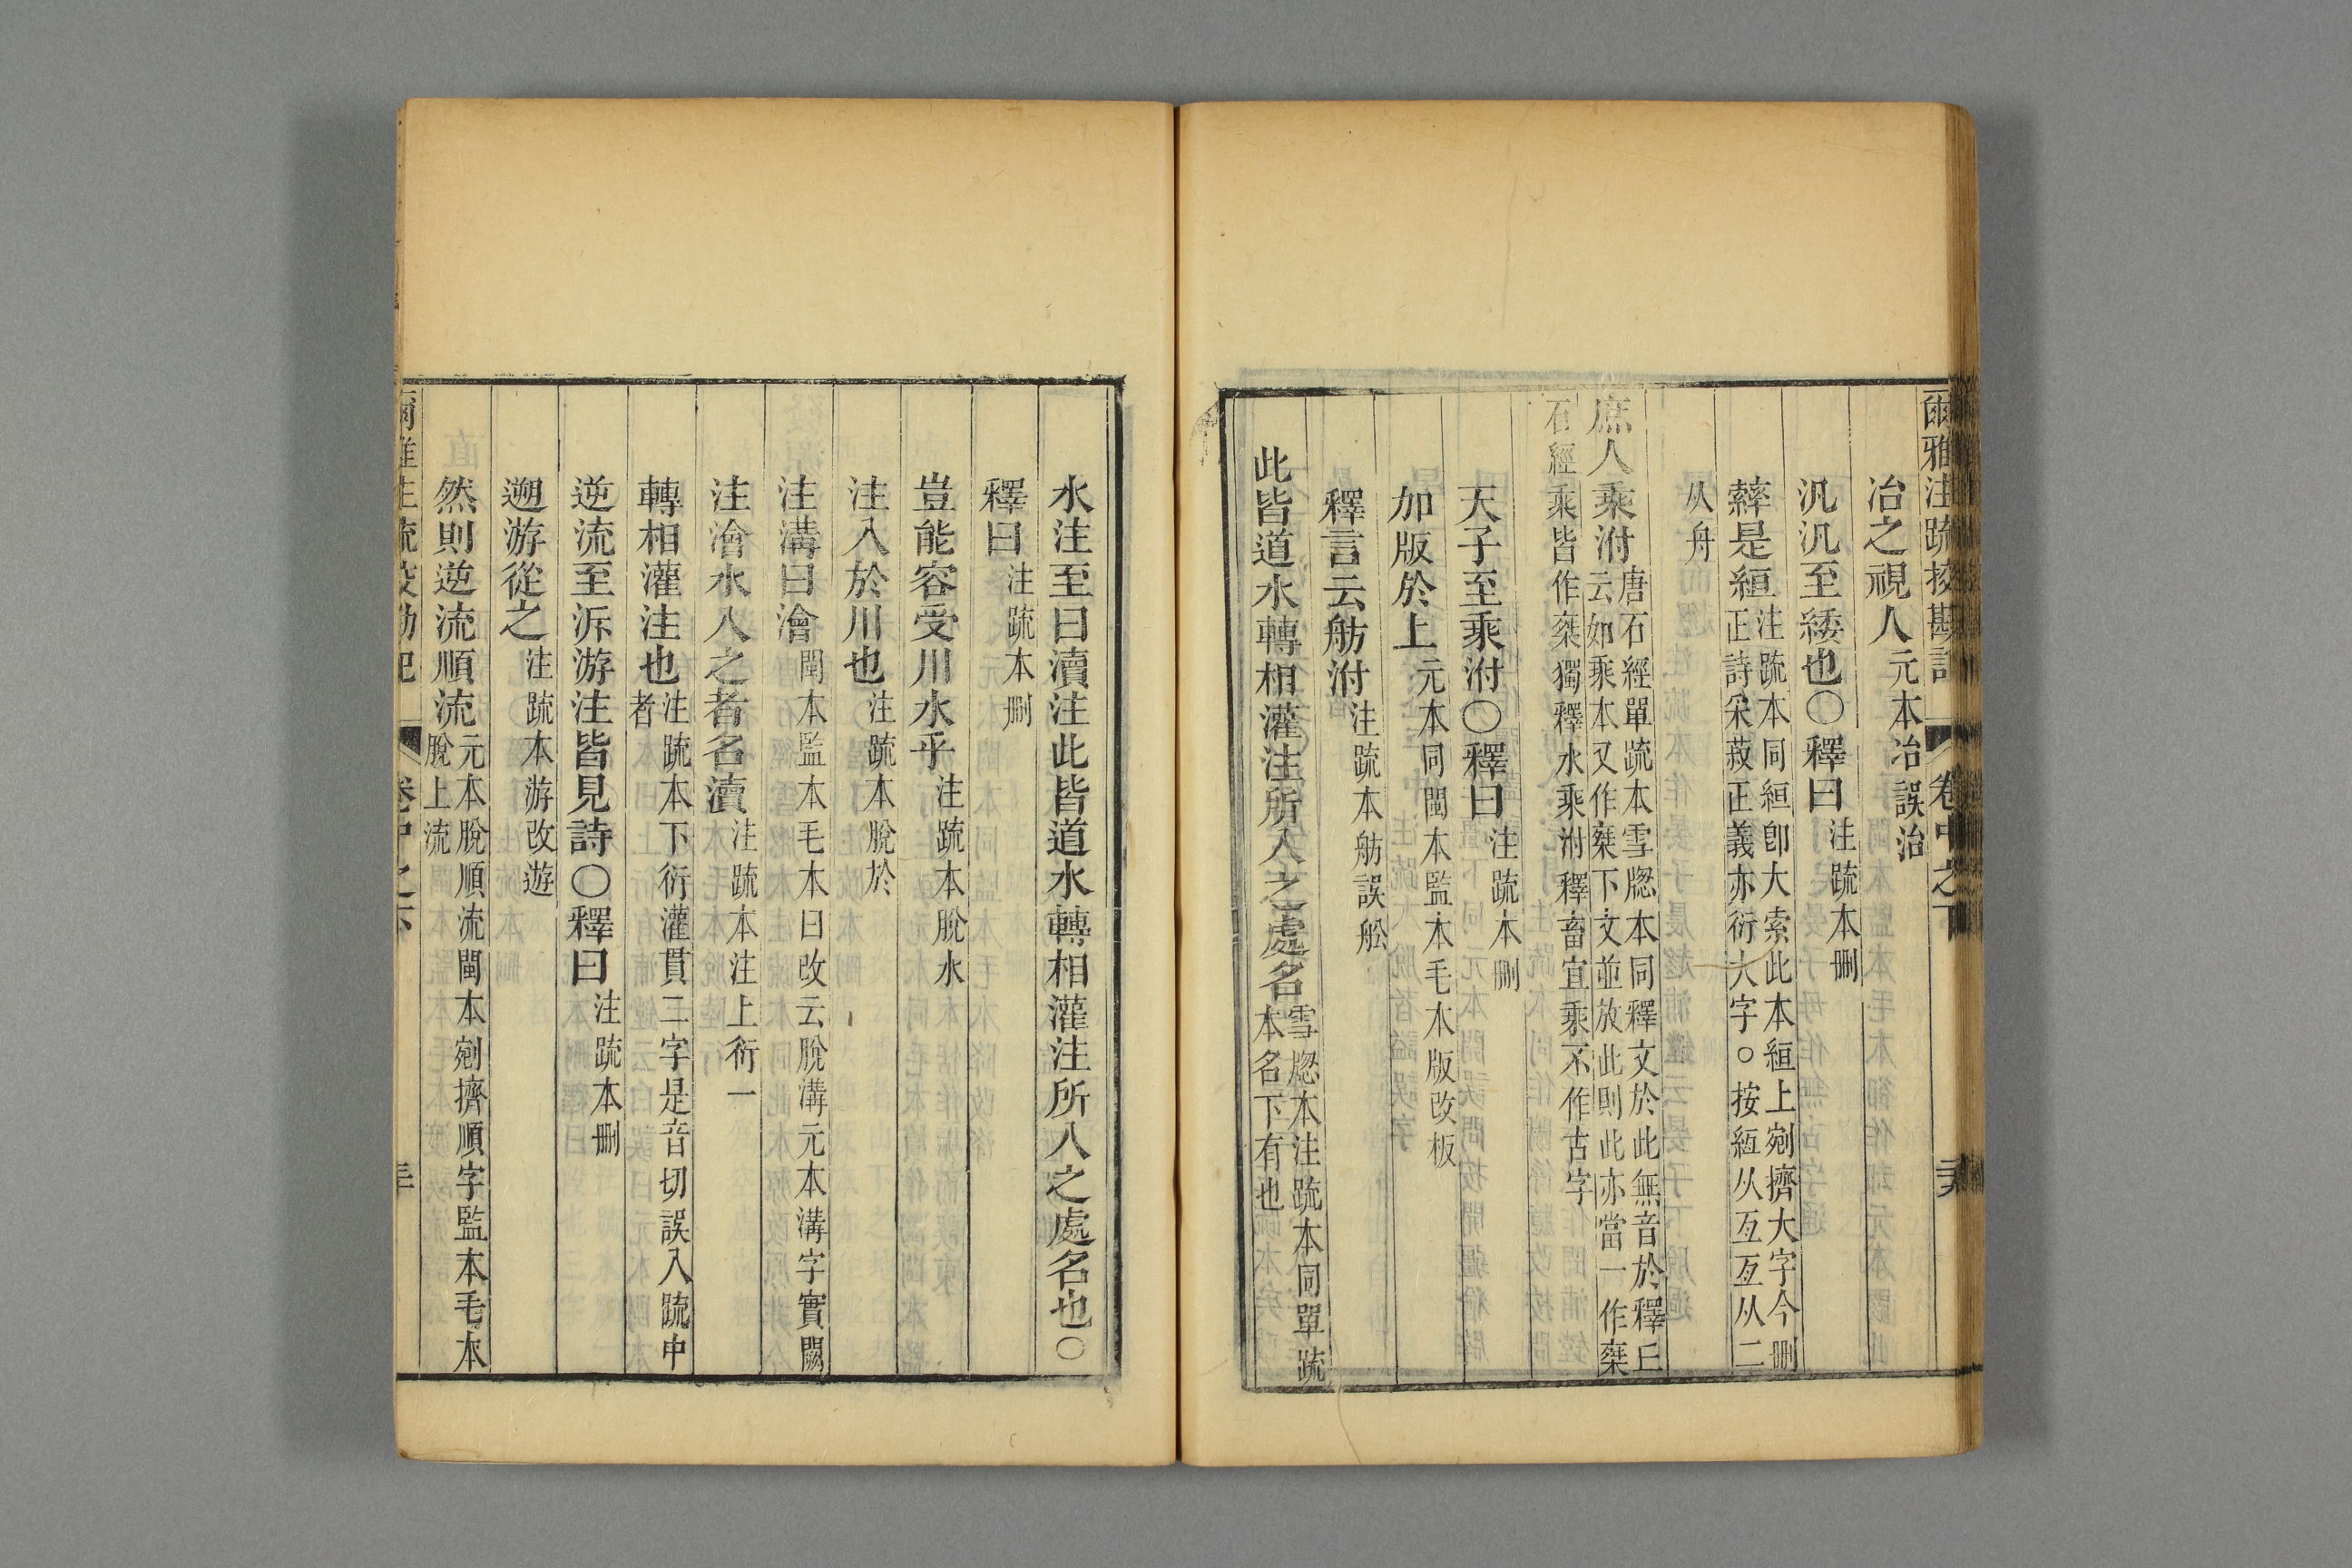 爾雅注疏挍勘記 卷中之下
冶之視人元本冶誤治
汎汎至緌也〇釋曰注疏本刪
繂是絙注疏本同絙卽大索此本絙上剜擠大字今刪
正詩采菽正義亦衍大字〇按絚从亙亙从二
从舟
庶人乘泭唐石經單疏本雪牕本同釋文於此無音於釋丘
云如乘本又作椉下文並放此則此亦當一作椉
石經乘皆作椉獨釋水乘泭釋畜宜乘不作古字
天子至乘泭〇釋曰注疏本刪
加版於上元本同閩本監本毛本版改板
釋言云舫泭注疏本舫誤舩
此皆道水轉相灌注所入之處名雪牕本注疏本同單疏
本名下有也
水注至曰瀆注此皆道水轉相灌注所入之處名也〇
釋曰注疏本刪
豈能容受川水乎注疏本脫水
注入於川也注疏本脫於
注溝曰澮閩本監本毛本曰改云脫溝元本溝字實闕
注澮水入之者名瀆注疏本注上衍一
轉相灌注也注疏本下衍灌貫二字是音切誤入疏中
者
逆流至泝游注皆見詩〇釋曰注疏本刪
遡游從之注疏本游改遊
然則逆流順流元本脫順流閩本剜擠順字監本毛本
脫上流
爾雅注疏挍勘記 卷中之下